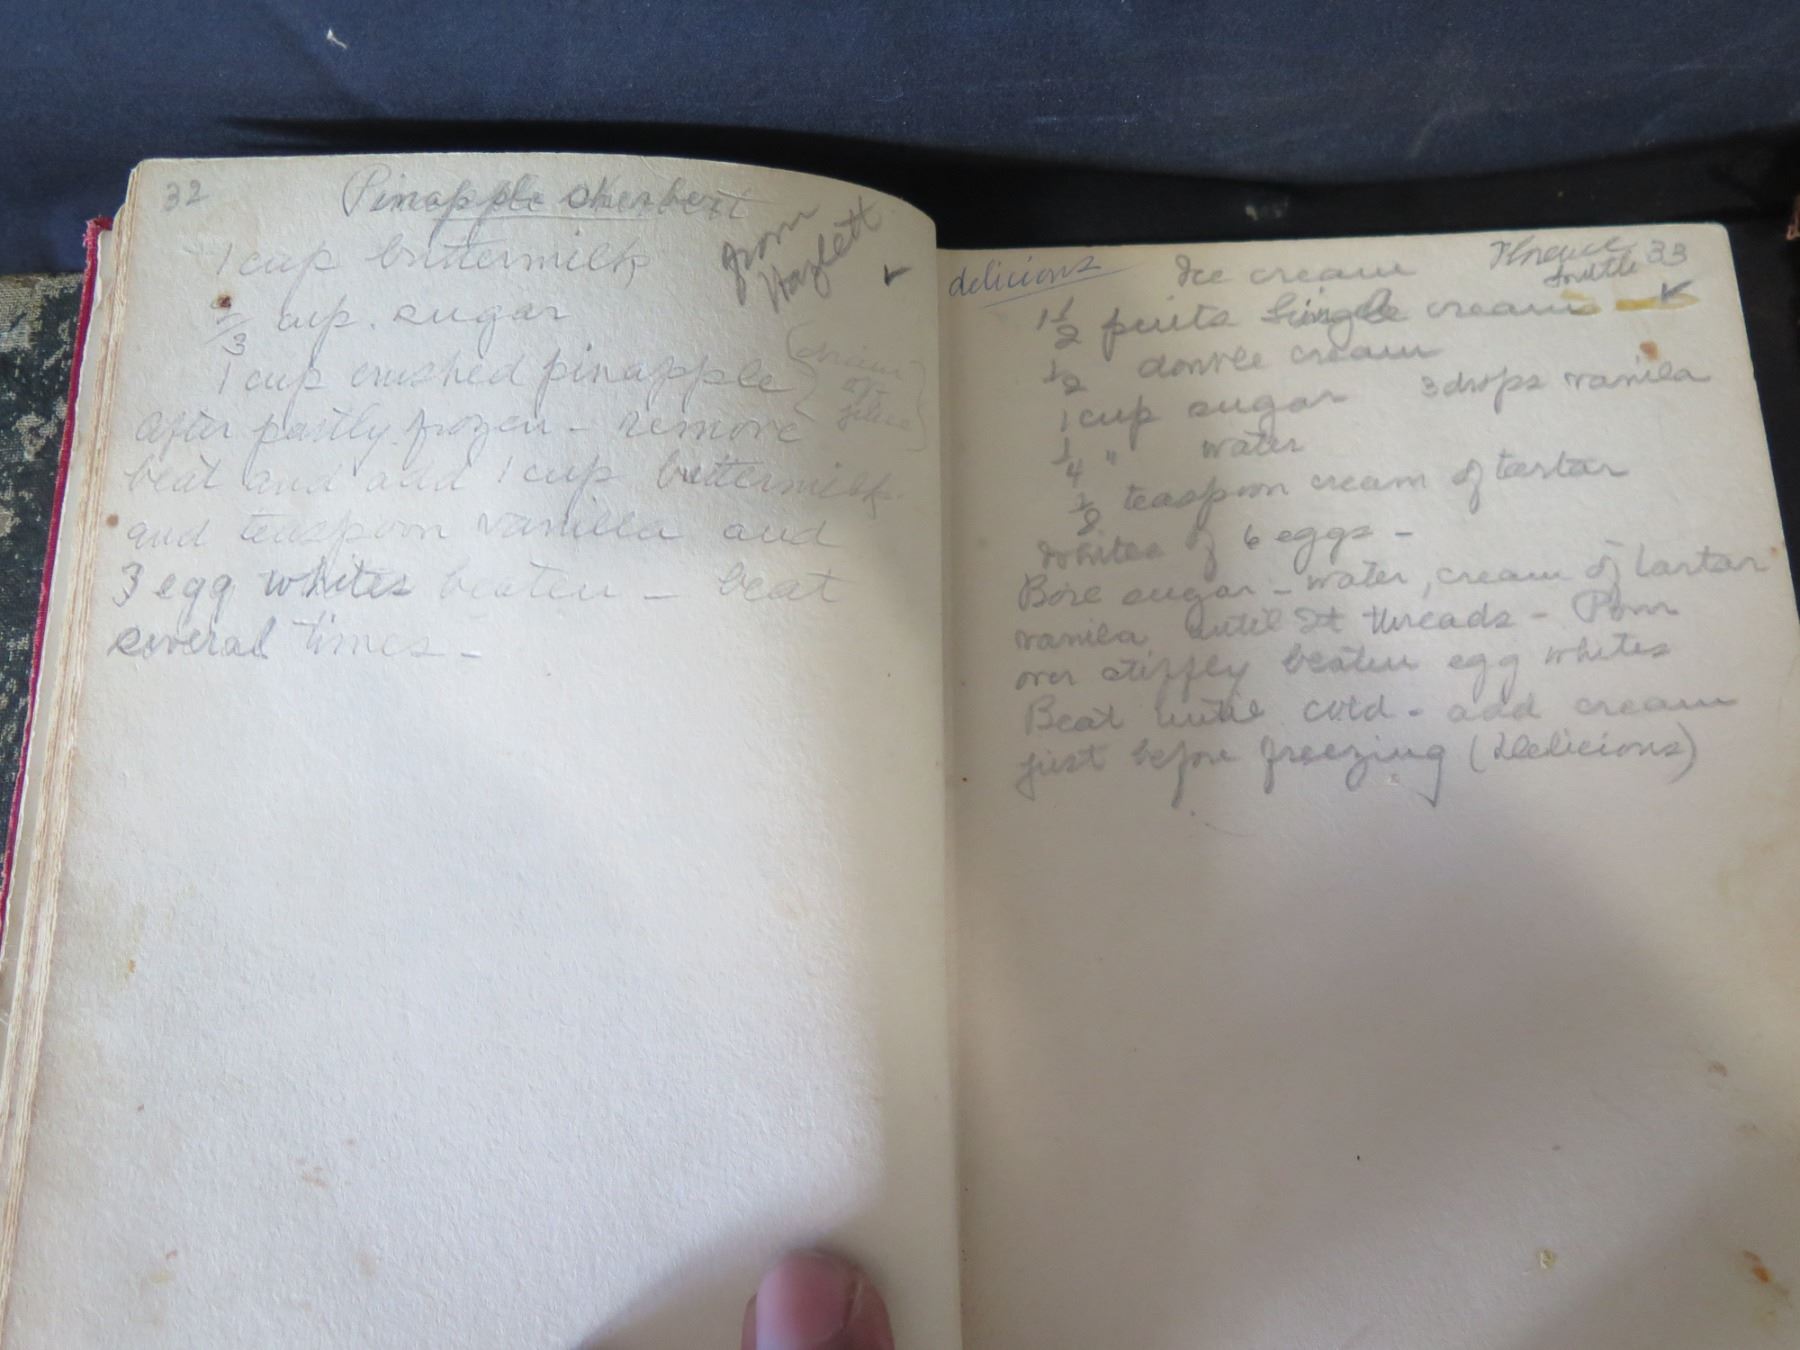 32
Pinapple Sherbert
from
Hazlett
1 cup buttermilk
2/3 cup. sugar
1 cup crushed pinapple
(drain
off
juice)
After partly frozen - remove
beat and add 1 cup buttermilk
and teaspoon vanilla and
3 egg whites beaten - beat
several times -
delicious
Ice cream
33
1 1/2 pints Single cream
1/2 double cream
1 cup sugar 3 drops vanila
1/4 " water
1/8 teaspoon cream of tartar
Whites of 6 eggs -
Boil sugar - water, cream of tartar
vanila until It threads - Pour
over stiffly beaten egg whites
Beat until cold - add cream
just before freezing (Delicious)